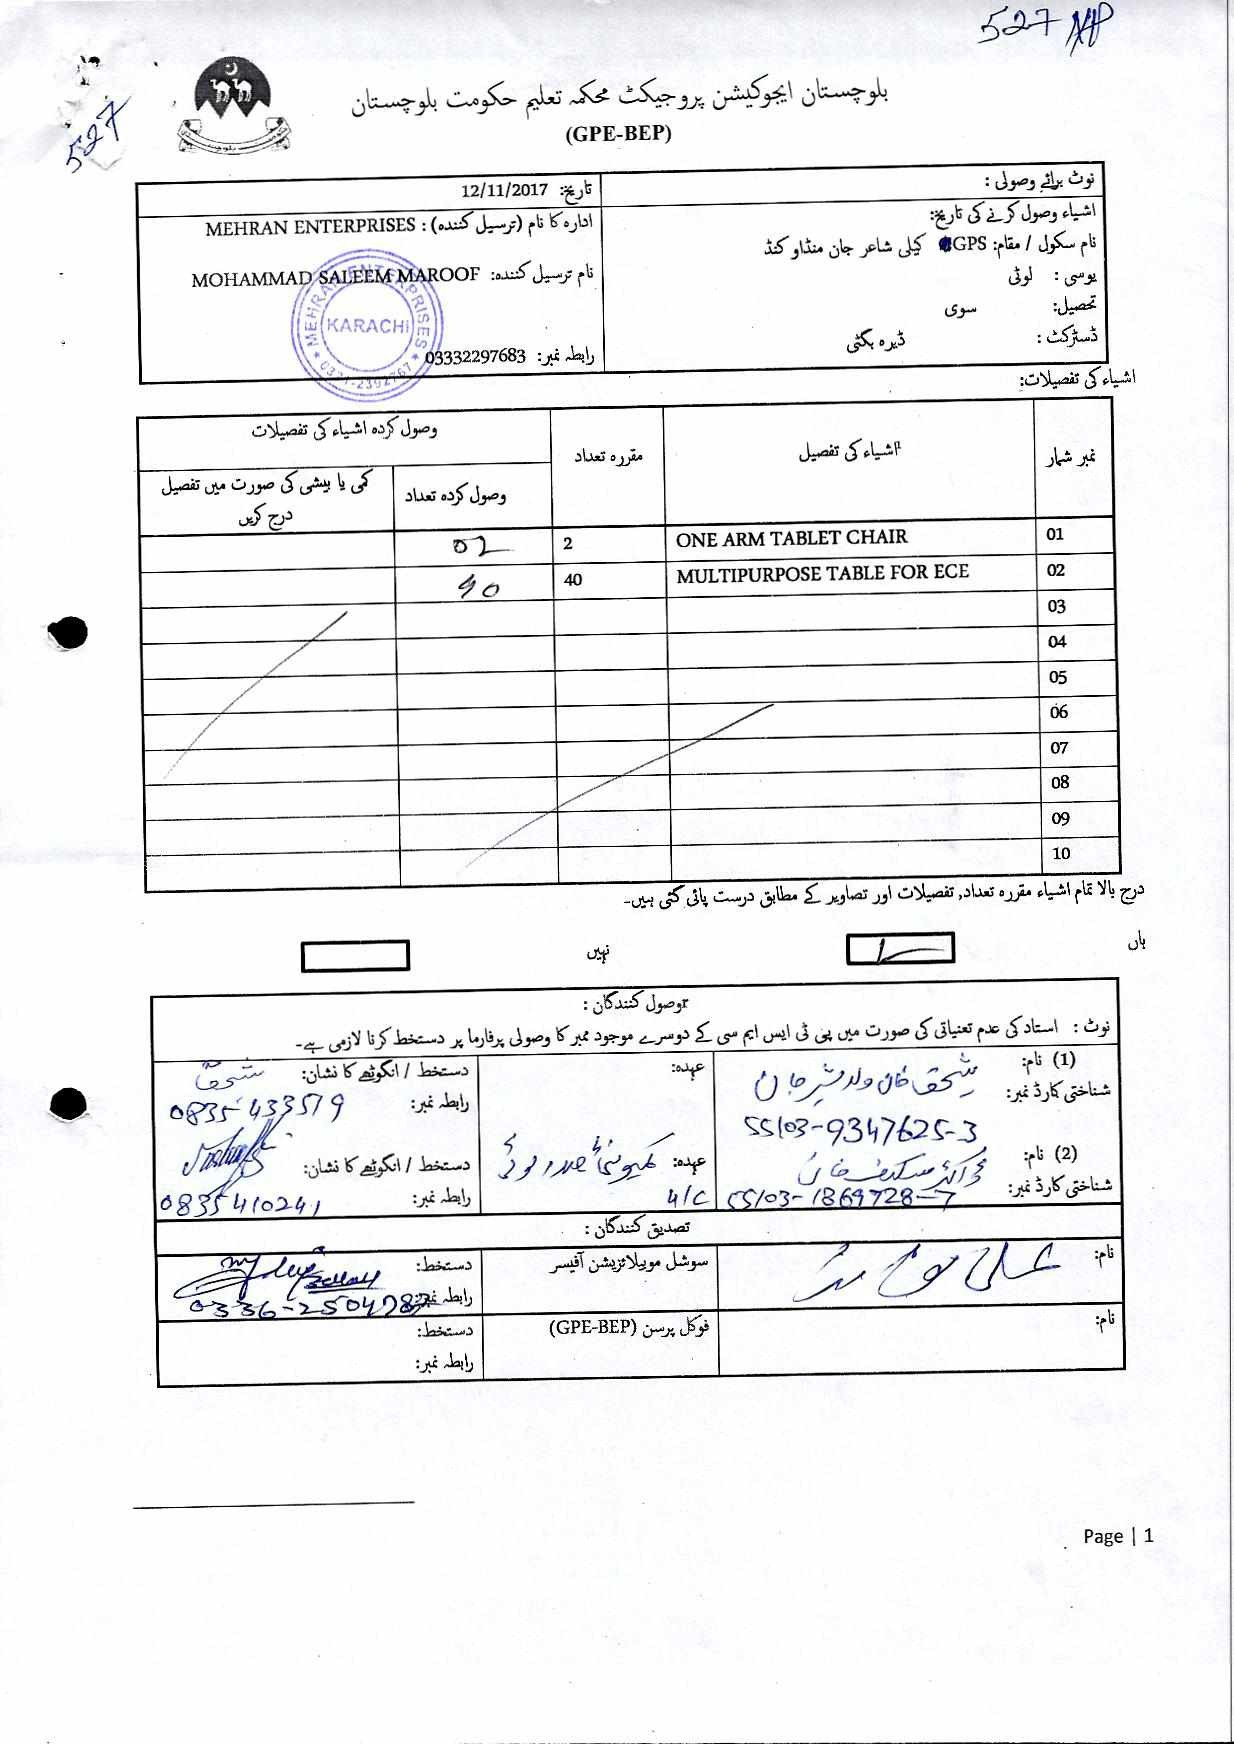 527
527
بلوچستان ایجوکیشن پروجیکٹ محکمہ تعلیم حکومت بلوچستان
(GPE-BEP)
نوٹ برائے وصولی :
تاریخ: 12/11/2017
اشیاء وصول کرنے کی تاریخ:
ادارہ کا نام (ترسیل کنندہ) : MEHRAN ENTERPRISES
نام سکول / مقام: GPS کیلی شاعر جان منڈاو کنڈ
نام ترسیل کنندہ: MOHAMMAD SALEEM MAROOF
یوسی : لوٹی
تحصیل: سوی
ڈسٹرکٹ : ڈیرہ بگٹی
رابطہ نمبر: 03332297683
MEHRAN ENTERPRISES
KARACHI
0321-2392767
اشیاء کی تفصیلات:
نمبر شمار اشیاء کی تفصیل مقررہ تعداد وصول کردہ اشیاء کی تفصیلات
وصول کردہ تعداد کمی یا بیشی کی صورت میں تفصیل درج کریں
01 ONE ARM TABLET CHAIR 2 02
02 MULTIPURPOSE TABLE FOR ECE 40 40
03
04
05
06
07
08
09
10
درج بالا تمام اشیاء مقررہ تعداد, تفصیلات اور تصاویر کے مطابق درست پائی گئی ہیں۔
ہاں نہیں
وصول کنندگان :
نوٹ : استاد کی عدم تعنیاتی کی صورت میں پی ٹی ایس ایم سی کے دوسرے موجود ممبر کا وصولی پرفارما پر دستخط کرنا لازمی ہے۔
(1) نام: عہدہ: دستخط / انگوٹھے کا نشان:
شناختی کارڈ نمبر: 55103-9347625-3 رابطہ نمبر: 0835433519
(2) نام: عہدہ: دستخط / انگوٹھے کا نشان:
شناختی کارڈ نمبر: 55103-1869728-7 رابطہ نمبر: 0835410241
تصدیق کنندگان :
نام: سوشل موبیلائزیشن آفیسر دستخط:
رابطہ نمبر: 0336-2504783
نام: فوکل پرسن (GPE-BEP) دستخط:
رابطہ نمبر:
Page | 1